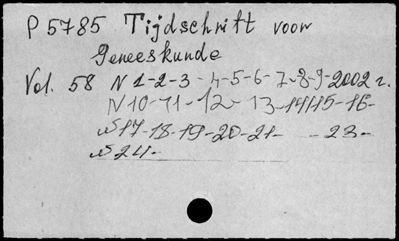 P 5785 Tijdschrift voor
Geneeskunde
Vol. 58 N 1-2-3-4-5-6-7-8-9-2002 г.
N 10-11-12-13-14/15-16-
N 17-18-19-20-21- -23-
N 24-